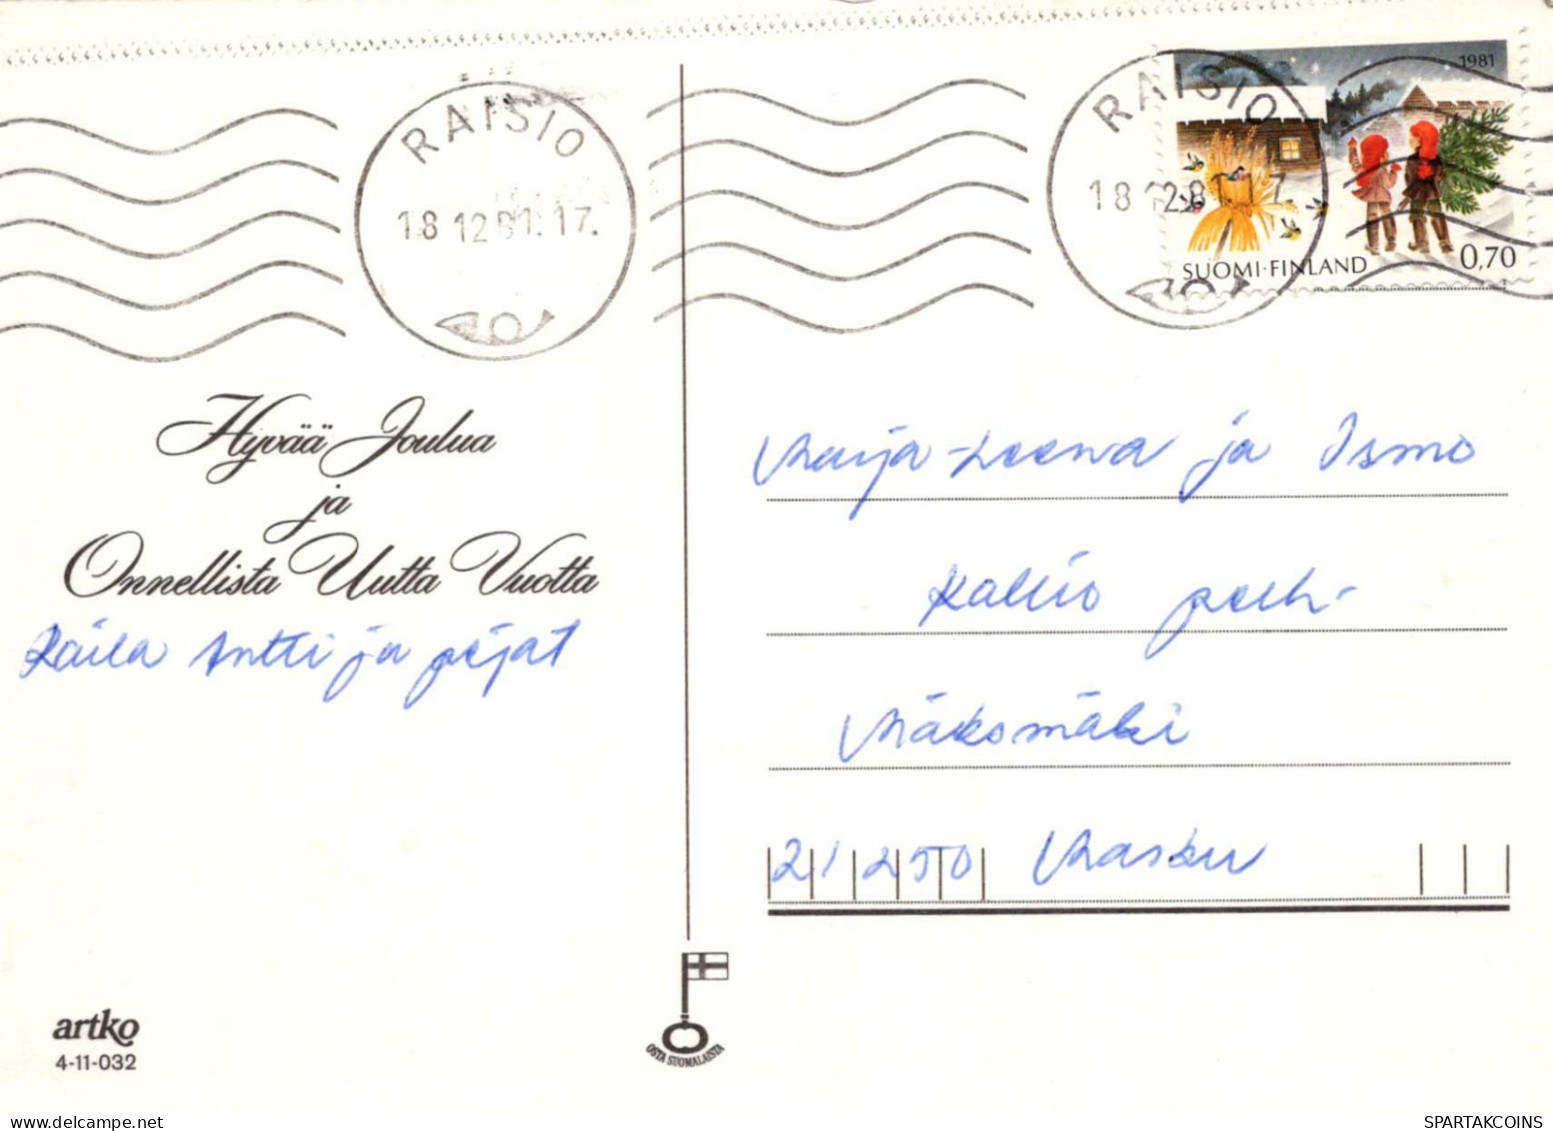 RAISIO
18 12 81. 17.
RAISIO
1981
SUOMI·FINLAND 0,70
Hyvää Joulua
ja
Onnellista Uutta Vuotta
Raila Antti ja pojat
Marja-Leena ja Ismo
Kallio perh.
Mäksmäki
21250 Masku
artko
4-11-032
OSTA SUOMALAISTA
SPARTAKCOINS